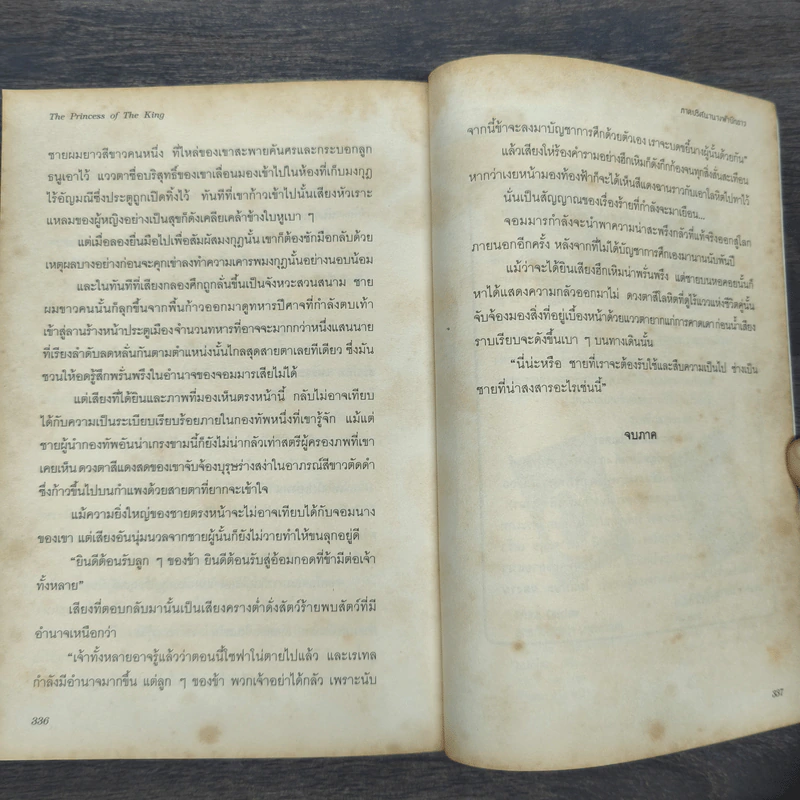 The Princess of The King
ชายผมยาวสีขาวคนหนึ่ง ที่ไหล่ของเขาสะพายคันศรและกระบอกลูก
ธนูเอาไว้ แววตาซื่อบริสุทธิ์ของเขาเลื่อนมองเข้าไปในห้องที่เก็บมงกุฎ
ไร้อัญมณีซึ่งประตูถูกเปิดทิ้งไว้ ทันทีที่เขาก้าวเข้าไปนั้นเสียงหัวเราะ
แหลมของผู้หญิงอย่างเป็นสุขก็ดังเคลียเคล้าข้างใบหูเบา ๆ
แต่เมื่อลองยื่นมือไปเพื่อสัมผัสมงกุฎนั้น เขาก็ต้องชักมือกลับด้วย
เหตุผลบางอย่างก่อนจะคุกเข่าลงทำความเคารพมงกุฎนั้นอย่างนอบน้อม
และในทันทีที่เสียงกลองศึกถูกลั่นขึ้นเป็นจังหวะสวนสนาม ชาย
ผมขาวคนนั้นก็ลุกขึ้นจากพื้นก้าวออกมาดูทหารปีศาจที่กำลังตบเท้า
เข้าสู่ลานร้างหน้าประตูเมืองจำนวนทหารที่อาจจะมากกว่าหนึ่งแสนนาย
ที่เรียงลำดับลดหลั่นกันตามตำแหน่งนั้นไกลสุดสายตาเลยทีเดียว ซึ่งมัน
ชวนให้อดรู้สึกพรั่นพรึงในอำนาจของจอมมารเสียไม่ได้
แต่เสียงที่ได้ยินและภาพที่มองเห็นตรงหน้านี้ กลับไม่อาจเทียบ
ได้กับความเป็นระเบียบเรียบร้อยภายในกองทัพหนึ่งที่เขารู้จัก แม้แต่
ชายผู้นำกองทัพอันน่าเกรงขามนี้ก็ยังไม่น่ากลัวเท่าสตรีผู้ครองภพที่เขา
เคยเห็น ดวงตาสีแดงสดของเขาจับจ้องบุรุษร่างสง่าในอาภรณ์สีขาวตัดดำ
ซึ่งก้าวขึ้นไปบนกำแพงด้วยสายตาที่ยากจะเข้าใจ
แม้ความยิ่งใหญ่ของชายตรงหน้าจะไม่อาจเทียบได้กับจอมนาง
ของเขา แต่เสียงอันนุ่มนวลจากชายผู้นั้นก็ยังไม่วายทำให้ขนลุกอยู่ดี
“ยินดีต้อนรับลูก ๆ ของข้า ยินดีต้อนรับสู่อ้อมกอดที่ข้ามีต่อเจ้า
ทั้งหลาย”
เสียงที่ตอบกลับมานั้นเป็นเสียงครางต่ำดั่งสัตว์ร้ายพบสัตว์ที่มี
อำนาจเหนือกว่า
“เจ้าทั้งหลายอาจรู้แล้วว่าตอนนี้ไซฟาไน่ตายไปแล้ว และเรเทล
กำลังมีอำนาจมากขึ้น แต่ลูก ๆ ของข้า พวกเจ้าอย่าได้กลัว เพราะนับ
336
จากนี้ข้าจะลงมาบัญชาการศึกด้วยตัวเอง เราจะบดขยี้นางผู้นั้นด้วยกัน”
แล้วเสียงให้ร้องคำรามอย่างฮึกเหิมก็ดังกึกก้องจนทุกสิ่งสั่นสะเทือน
หากว่าเงยหน้ามองท้องฟ้าก็จะได้เห็นสีแดงฉานราวกับเอาโลหิตไปทาไว้
นั่นเป็นสัญญาณของเรื่องร้ายที่กำลังจะมาเยือน...
จอมมารกำลังจะนำพาความน่าสะพรึงกลัวที่แท้จริงออกสู่โลก
ภายนอกอีกครั้ง หลังจากที่ไม่ได้บัญชาการศึกเองมานานนับพันปี
แม้ว่าจะได้ยินเสียงฮึกเหิมน่าพรั่นพรึง แต่ชายบนหอคอยนั้นก็
หาได้แสดงความกลัวออกมาไม่ ดวงตาสีโลหิตที่ดูไร้แววแห่งชีวิตคู่นั้น
จับจ้องมองสิ่งที่อยู่เบื้องหน้าด้วยแววตายากแก่การคาดเดา ก่อนน้ำเสียง
ราบเรียบจะดังขึ้นเบา ๆ บนทางเดินนั้น
“นี่น่ะหรือ ชายที่เราจะต้องรับใช้และสืบความเป็นไป ช่างเป็น
ชายที่น่าสงสารอะไรเช่นนี้”
จบภาค
337